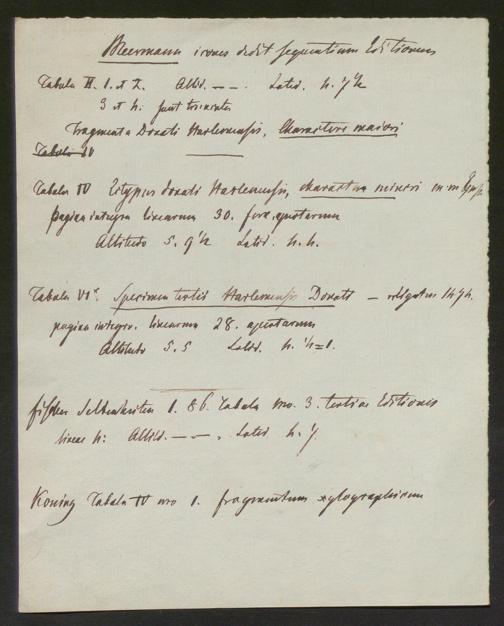 Meermann icones dedit sequentium Editionum
Tabula II. 1. et 2. Altid. — —. Latid. 4.
3 et 4: sunt
Fragmenta Donati Harlemensis, Charactere maiori
Tabula IV
Tabula IV Ectypus donati Harlemensis, charactere minori
pagina integra linearum 30.
Altitudo 5. 9 Latid. 4. 4.
Tabula VI Specimen tertii Harlemensis Donati —
pagina integra. linearum 28.
Altitudo 5. 5 Latid. 4.
Fischer Seltenheiten 1. 86. Tabula nro. 3. tertiae Editionis
lineae 4: Altid. — —. Latid. 4.
Koning Tabula IV nro 1. fragmentum xylographicum